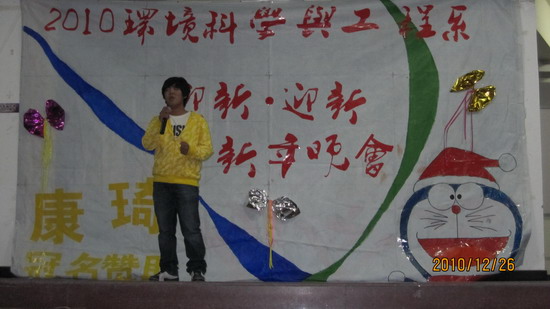 2010環境科學與工程系
迎新·迎新
新年晚會
康琦
冠名赞助
2010/12/26